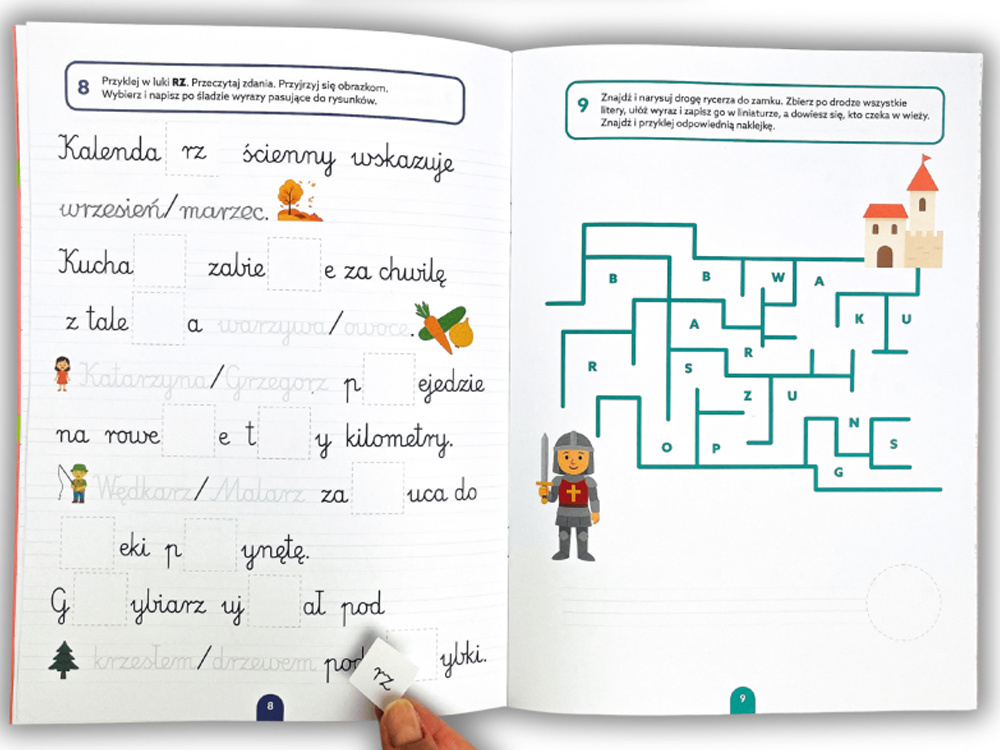 8
Przyklej w luki RZ. Przeczytaj zdania. Przyjrzyj się obrazkom.
Wybierz i napisz po śladzie wyrazy pasujące do rysunków.
Kalenda rz ścienny wskazuje
wrzesień/marzec.
Kucha zabie e za chwilę
z tale a warzywa/owoce.
Katarzyna/Grzegorz p ejedzie
na rowe e t y kilometry.
Wędkarz/Malarz za uca do
eki p ynętę.
G ybiarz uj ał pod
krzesłem/drzewem pod ybki.
rz
8
9
Znajdź i narysuj drogę rycerza do zamku. Zbierz po drodze wszystkie
litery, ułóż wyraz i zapisz go w liniaturze, a dowiesz się, kto czeka w wieży.
Znajdź i przyklej odpowiednią naklejkę.
B B W A
A K U
R S R
Z U
O P N S
G
9